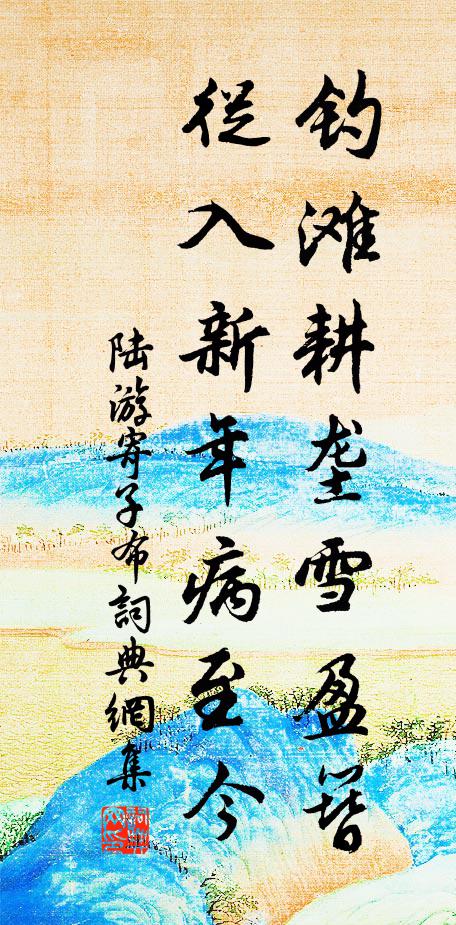 钓滩耕垄雪盈簪
從入新年病至今
陆游寄子布詞典網集